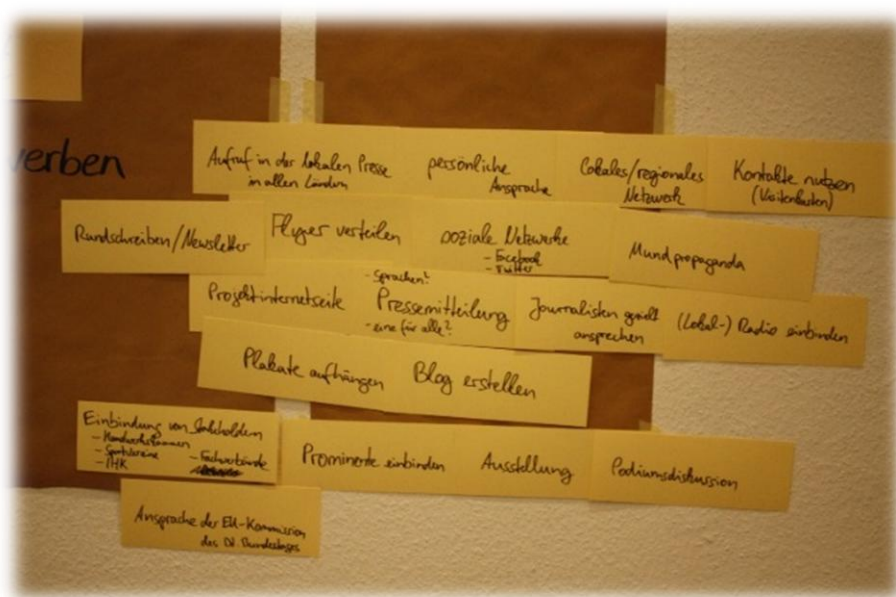 erben
Aufruf in der lokalen Presse
in allen Ländern
persönliche
Ansprache
Lokales/regionales
Netzwerk
Kontakte nutzen
(Visitenkarten)
Rundschreiben/Newsletter
Flyer verteilen
soziale Netzwerke
- Facebook
- Twitter
Mundpropaganda
Projektinternetseite
- Sprachen?
Pressemitteilung
- eine für alle?
Journalisten gezielt
ansprechen
(Lokal-) Radio einbinden
Plakate aufhängen
Blog erstellen
Einbindung von Stakeholdern
- Handwerkskammern
- Sportvereine
- Fachverbände
- IHK
Prominente einbinden
Ausstellung
Podiumsdiskussion
Ansprache der EU-Kommission
des Dt. Bundestages